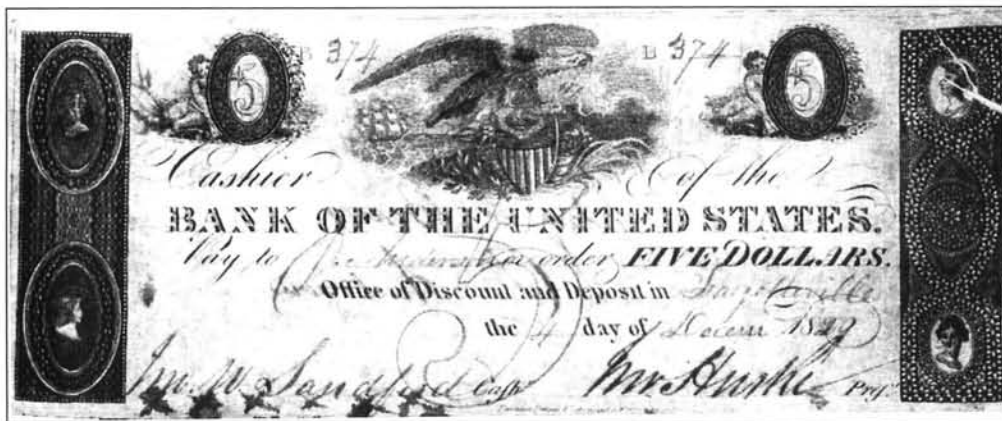 5 B 374 B 374 5
Cashier of the
BANK OF THE UNITED STATES.
Pay to or order FIVE DOLLARS.
Office of Discount and Deposit in Fayetteville
the 4 day of Decem 1829
Jno. W. Sandford Cashr. Jno. Huske Prest.